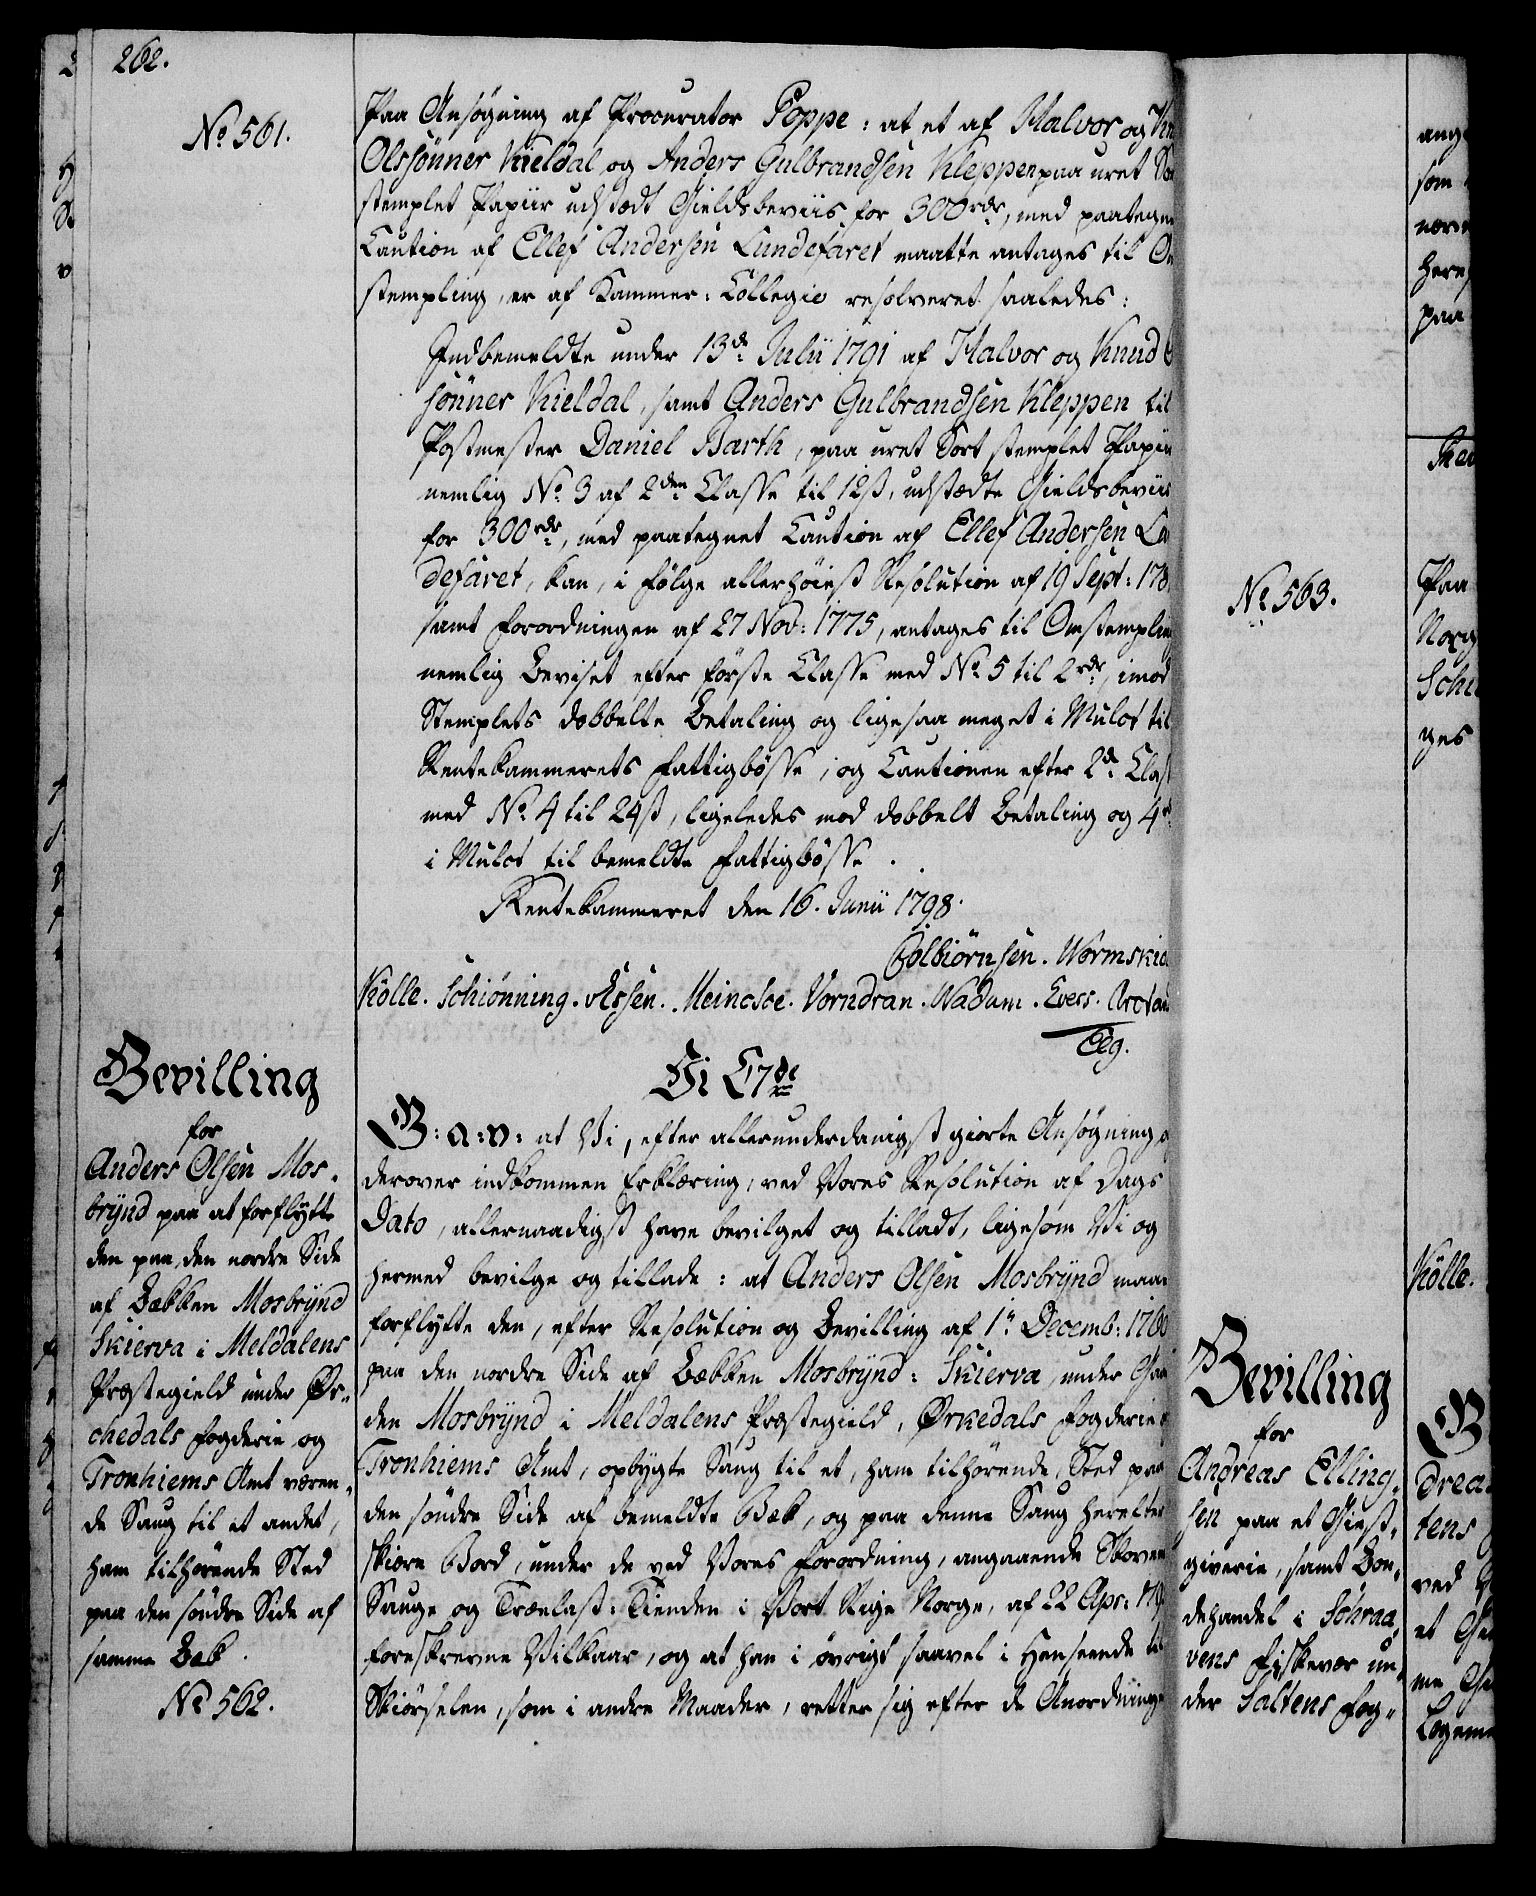 262.
No 561.
Paa Ansøgning af Procurator Poppe: at et af Halvor og
Olssønner Kieldal og Anders Gulbrandsen Kleppen paa uret
stemplet Papiir udstædt Gieldsbeviis for 300 rdr, med paategne
Caution af Ellef Andersen Lundefaret maatte antages til
stempling, er af Kammer-Collegio resolveret saaledes:
Indbemeldte under 13de Julii 1791 af Halvor og Knud
sønner Kieldal, samt Anders Gulbrandsen Kleppen til
Postmester Daniel Barth, paa uret Sort stemplet Papiir
nemlig No 3 af 2den Classe til 12 ß, udstædte Gieldsbeviis
for 300 rdr, med paategnet Caution af Ellef Andersen
defaret, kan, i Følge allerhøiest Resolution af 19 Sept: 178
samt Forordningen af 27 Nov: 1775, antages til Omstempling
nemlig Beviset efter første Classe med No 5 til 2 rdr, imod
Stemplets dobbelte Betaling og ligesaa meget i Mulct til
Rentekammerets Fattigbøsse; og Cautionen efter 2de Class
med No 4 til 24 ß, ligeledes mod dobbelt Betaling og 4
i Mulct til bemeldte Fattigbøsse.
Rentekammeret den 16. Junii 1798.
Colbiørnsen. Wormskio
Kölle. Schiønning. Essen. Meincke. Vorndran. Wadum. Evers. Arctan
Eeg.
Di C7de
Bevilling
for
Anders Olsen Mos-
brÿnd paa at forflytte
den paa den nordre Side
af Bækken Mosbrÿnd
Skierva i Meldalens
Præstegield under Ør-
chedals Fogderie og
Tronhiems Amt væren-
de Saug til et andet,
ham tilhørende Sted
paa den søndre Side af
samme Bæk.
No 562.
G: a: v: at Vi, efter allerunderdanigst giorte Ansøgning
derover indkommen Erklæring, ved Vores Resolution af Dags
Dato, allernaadigst have bevilget og tilladt, ligesom Vi og
hermed bevilge og tillade: at Anders Olsen Mosbrÿnd maae
forflytte den, efter Resolution og Bevilling af 1te Decemb: 1760
paa den nordre Side af Bækken Mosbrÿnd-Skierva, under Gaar
den Mosbrÿnd i Meldalens Præstegield, Ørkedals Fogderie
Tronhiems Amt, opbygte Saug til et, ham tilhørende, Sted paa
den søndre Side af bemeldte Bæk, og paa denne Saug herefter
skiære Bord, under de ved Vores Forordning, angaaende Skoven
Sauge og Trælast-Tienden i Vort Rige Norge, af 22 Apr: 179
foreskrevne Vilkaar, og at han i øvrigt saavel i Henseende til
Skiørselen, som i andre Maader, retter sig efter de Anordninge
No 563.
Bevilling
for
Andreas Elling-
sen paa et Giest-
giverie, samt Bon-
dehandel i Sörraa-
vens Fiskevær un-
der Saltens Fog-
som
paa
Paa
Norg
ges
Kölle.
G
Drea
tens
ved
et
me